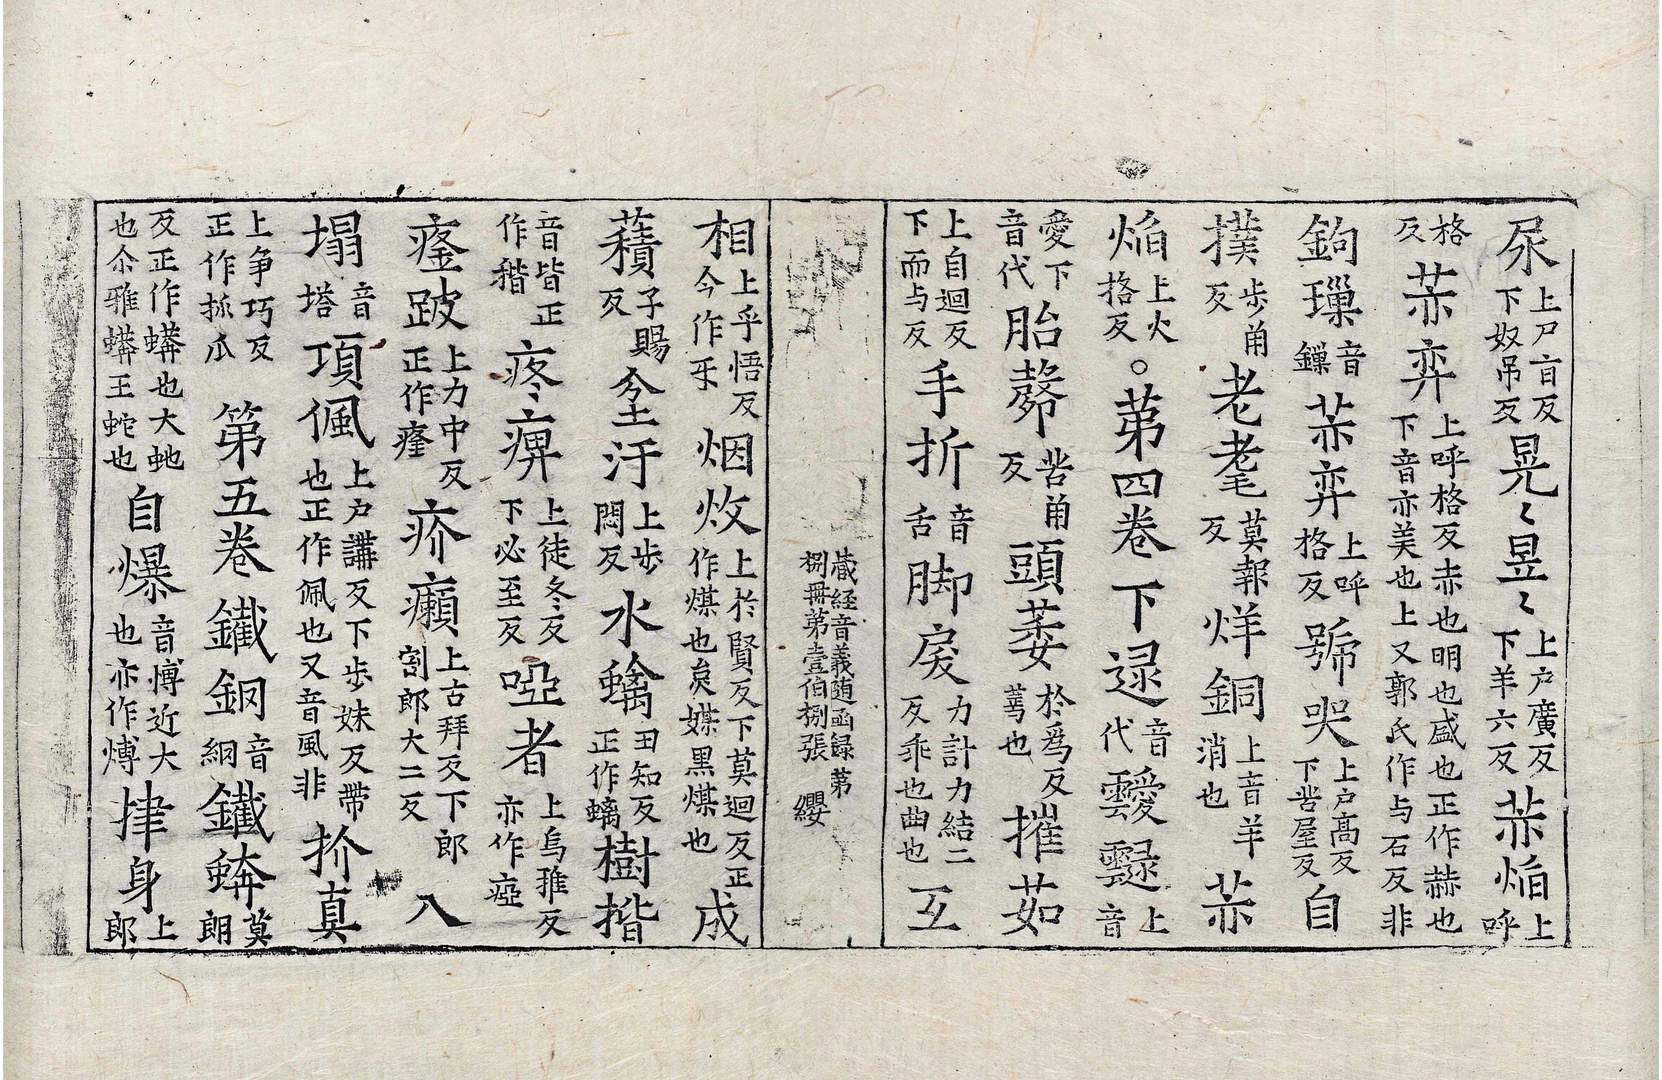 尿上尸盲反下奴吊反晃〻昱〻上戶廣反下羊六反𤆍焰上呼
格反𤆍弈上呼格反赤也明也盛也正作赫也下音亦美也上又郭氏作与石反非
鉤璅音鏁𤆍弈上呼格反號哭上戶高反下苦屋反自
撲步角反老耄莫報反烊銅上音羊消也𤆍
焰上火格反。第四卷下逯音代靉靆上音
愛下音代胎㲉苦角反頭萎於爲反蔫也摧茹
上自迴反下而与反手折音舌脚戾力計力結二反乖也曲也互
藏経音義随函録第捌冊第壹伯捌張 纓
相上乎悟反今作㸦烟炇上於賢反下莫迴反正作煤也炱媒黑煤也成
𧂐子賜反坌汙上步悶反水螭丑知反正作螭樹揩
音皆正作稭疼痹上徒冬反下必至反啞者上烏雅反亦作瘂
㾭跛上力中反正作癃疥癩上古拜反下郎割郎大二反八
塌音塔項佩上戶講反下步妹反帶也正作佩也又音風非抍真
上争巧反正作抓爪第五卷鐵鋼音綱鐵蟒莫朗
反正作蟒也大虵也尒雅蟒王蛇也自爆音愽近大也亦作煿𢯱身上郎